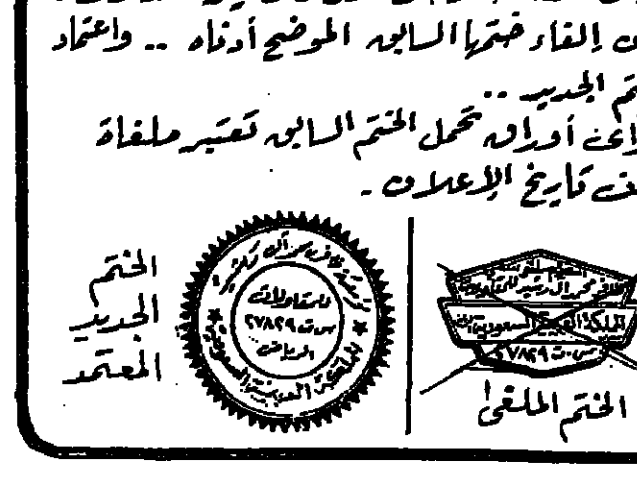 إلغاء ختمها السابق الموضح أدناه .. واعتماد
الجديد ..
أوراق تحمل الختم السابق تعتبر ملغاة
تاريخ الإعلان .
الختم
الجديد
المعتمد
مؤسسة
للمقاولات
س.ت ٢٧٨٢٩
الرياض
المملكة العربية السعودية
المملكة العربية السعودية
س.ت ٢٧٨٢٩
الختم الملغى